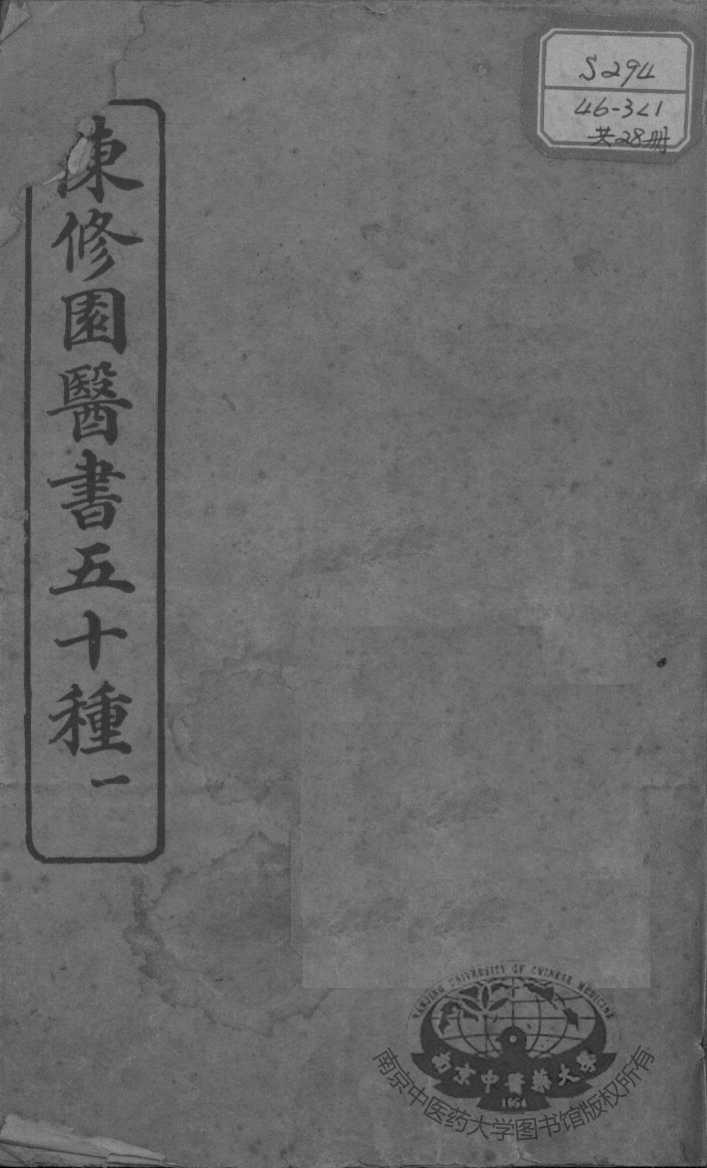 陳修園醫書五十種 一
S294
46-321
共28册
NANJING UNIVERSITY OF CHINESE MEDICINE
南京中醫藥大學
1954
南京中医药大学图书馆版权所有